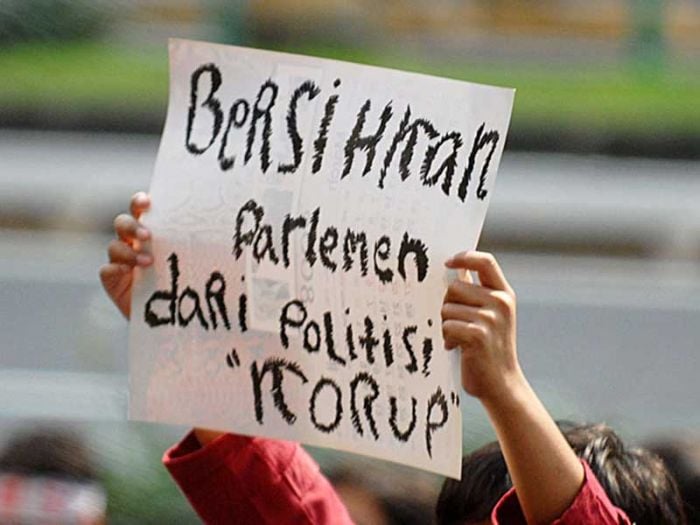 BERSiHKan
Parlemen
daRi Politisi
"KORUP"